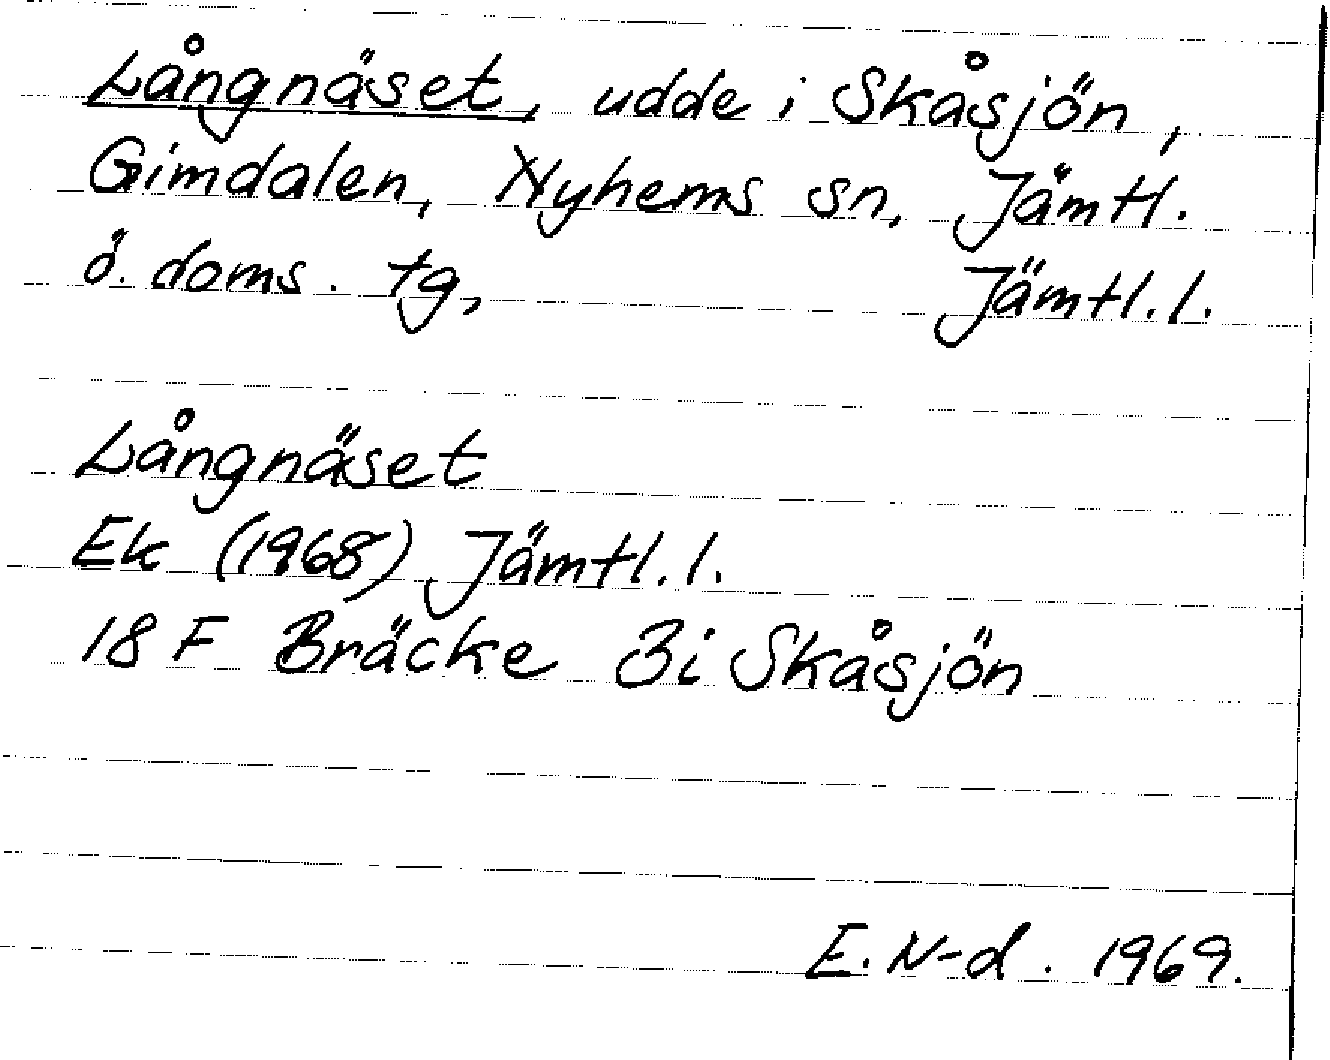 Långnäset, udde i Skåsjön,
Gimdalen, Nyhems sn, Jämtl.
ö. doms. tg, Jämtl. l.
Långnäset
Ek (1968) Jämtl. l.
18 F Bräcke 3i Skåsjön
E. N-d. 1969.